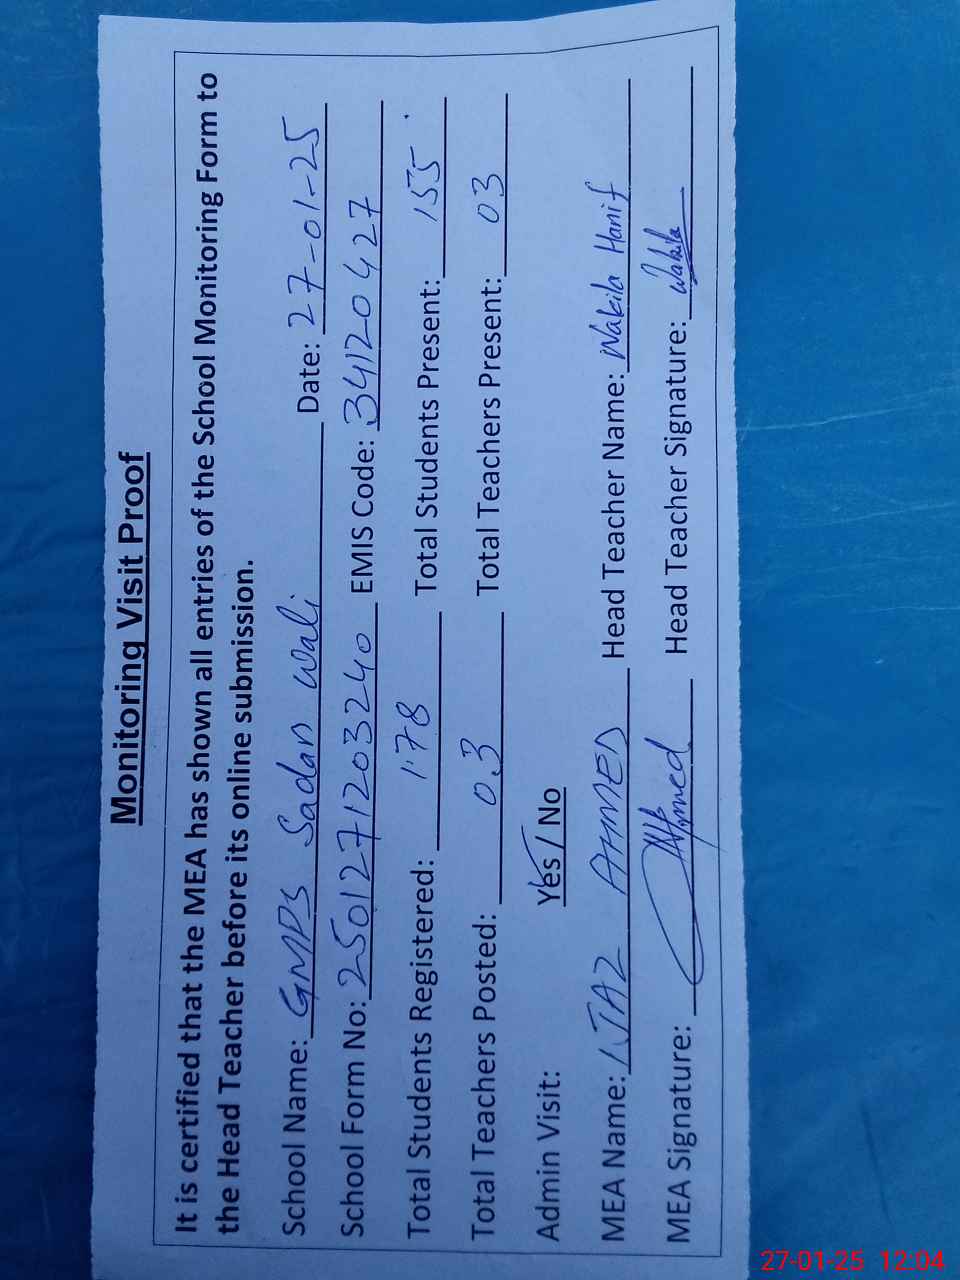 Monitoring Visit Proof
It is certified that the MEA has shown all entries of the School Monitoring Form to
the Head Teacher before its online submission.
School Name: GMPS Sadan Wali Date: 27-01-25
School Form No: 2501271203240 EMIS Code: 34120427
Total Students Registered: 178 Total Students Present: 155
Total Teachers Posted: 03 Total Teachers Present: 03
Admin Visit: Yes / No
MEA Name: IJAZ AHMED Head Teacher Name: Wakila Hanif
MEA Signature: Head Teacher Signature: Wakila
27-01-25 12:04